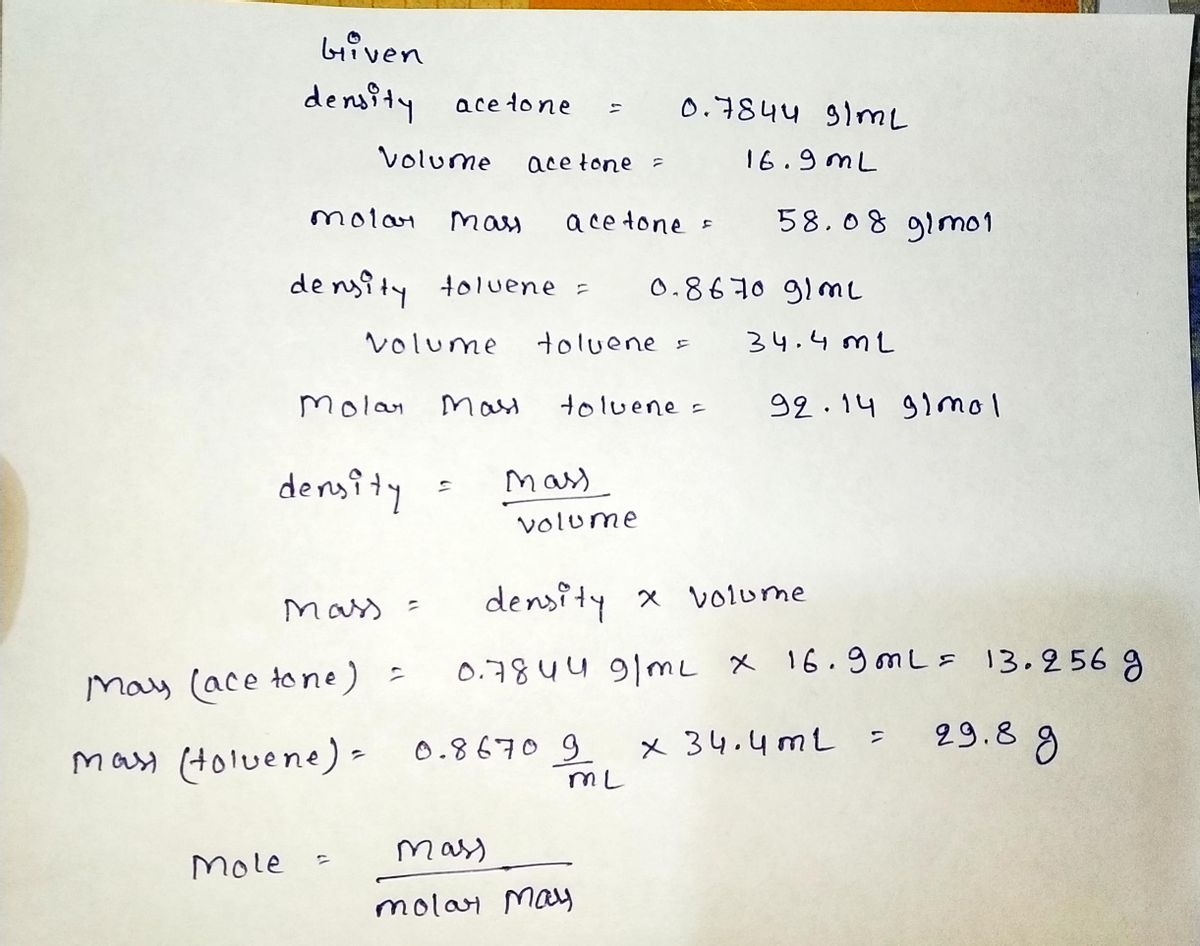 Given
density acetone = 0.7844 g/mL
Volume acetone = 16.9 mL
molar mass acetone = 58.08 g/mol
density toluene = 0.8670 g/mL
volume toluene = 34.4 mL
Molar Mass toluene = 92.14 g/mol
density = mass
volume
mass = density x volume
mass (acetone) = 0.7844 g/mL x 16.9 mL = 13.256 g
mass (toluene) = 0.8670 g x 34.4 mL = 29.8 g
mL
Mole = mass
molar mass